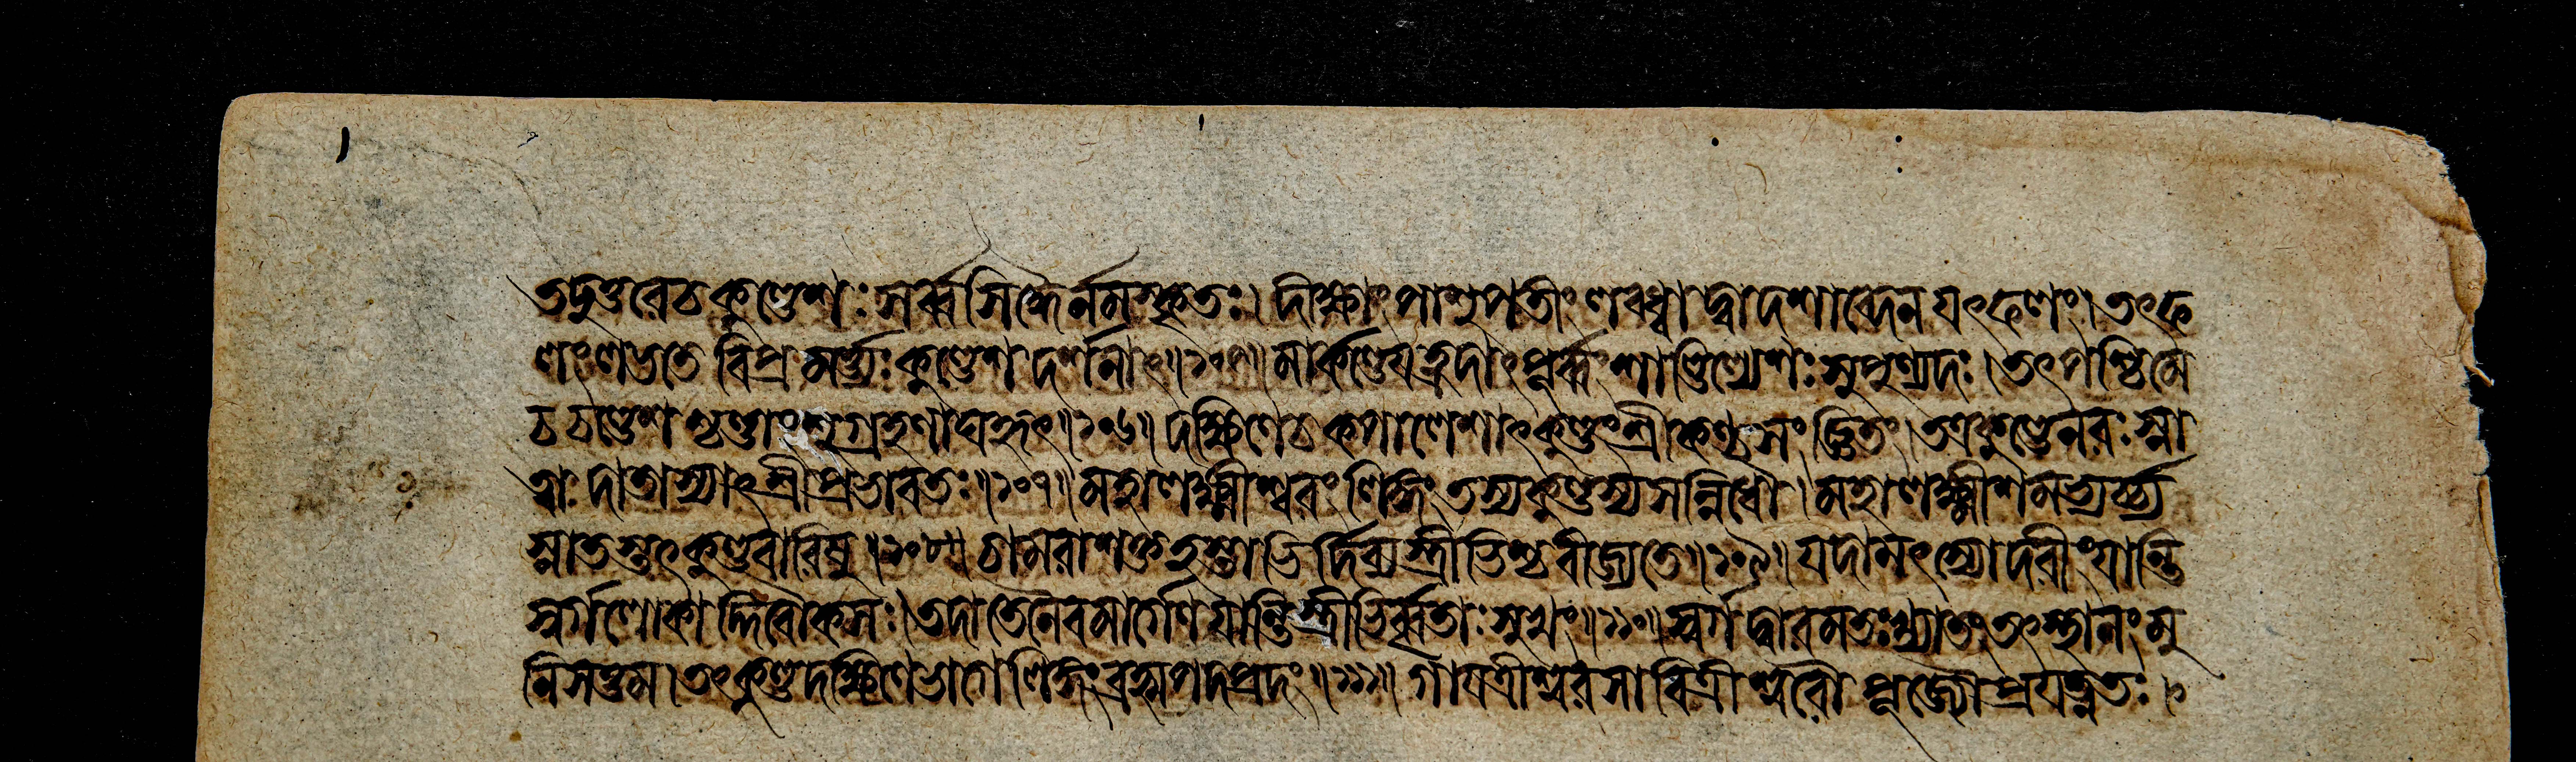 তদুত্তরেচকুণ্ডেশঃসর্ব্বসিদ্ধৈর্নমস্কৃতঃ। দীক্ষাংপাশুপতীংলবধ্বাদ্বাদশাব্দেনযৎফলং। তৎফ
লংলভতেবিপ্রমর্ত্ত্যঃকুণ্ডেশদর্শনাৎ॥১০৫॥মার্কণ্ডেয়হ্রদাৎপূর্ব্বংশাণ্ডিল্যেশঃসুপুণ্যদঃ।তৎপশ্চিমে
চচণ্ডেশশ্চণ্ডাংশুগ্রহণাঘহৃৎ॥১০৬॥দক্ষিণেচকপালেশাৎকুণ্ডংশ্রীকণ্ঠসংজ্ঞিতং।তত্রকুণ্ডেনরঃস্না
ত্বাদাতাস্যাৎশ্রীপ্রভাবতঃ॥১০৭॥মহালক্ষ্মীশ্বরংলিঙ্গংতস্যকুণ্ডস্যসন্নিধৌ।মহালক্ষ্মীশমভ্যর্চ্চ্য
স্নাতস্তৎকুণ্ডবারিষু।১০৮॥চামরাশক্তহস্তাভির্দিব্যস্ত্রীভিশ্চবীজ্যতে॥১০৯॥যদামৎস্যোদরীংযান্তি
স্বর্গলোকাদ্দিবৌকসঃ।তদাতেনৈবমার্গেণযান্তিস্ত্রীভির্বৃতাঃসুখং॥১১০॥স্বর্গদ্বারমতঃখ্যাতংতৎস্থানংমু
নিসত্তম।তৎকুণ্ডদক্ষিণেভাগেলিঙ্গংব্রহ্মপদপ্রদং॥১১১॥গায়ত্রীশ্বরসাবিত্রীশ্বরৌপূজ্যৌপ্রযত্নতঃ।